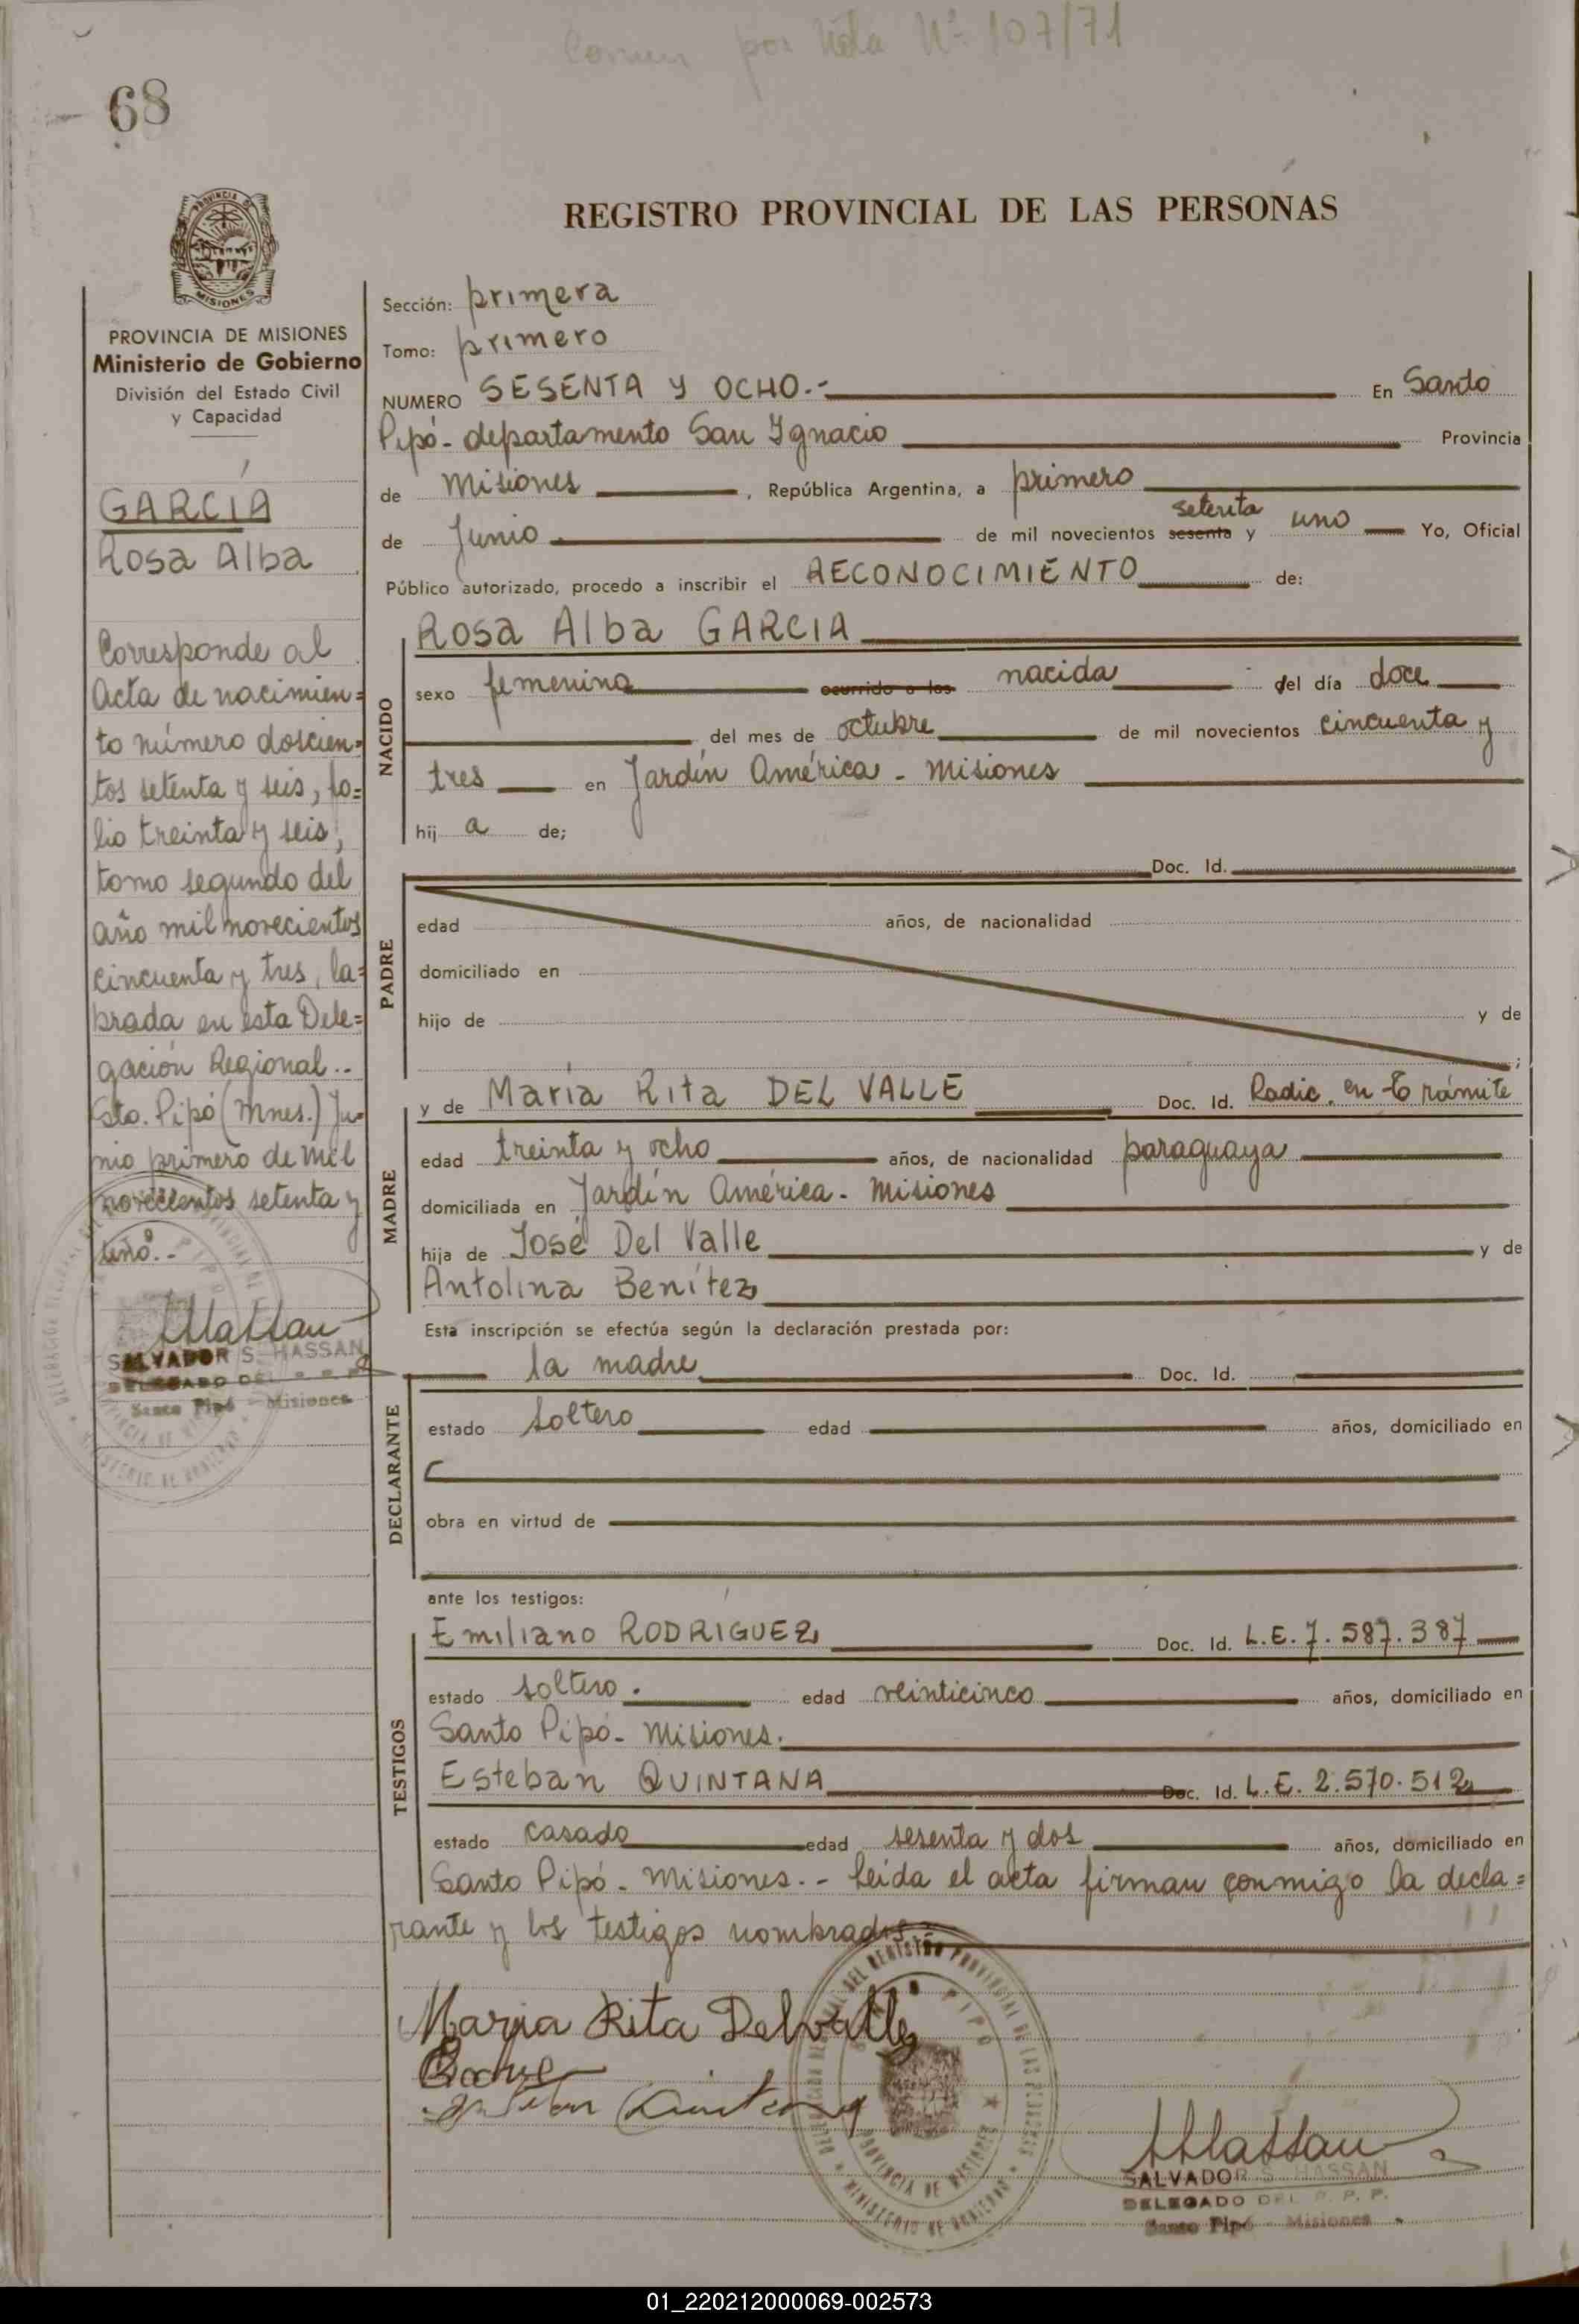 por Nota Nº 107/71
68
PROVINCIA DE
MISIONES
REGISTRO PROVINCIAL DE LAS PERSONAS
PROVINCIA DE MISIONES
Ministerio de Gobierno
División del Estado Civil
y Capacidad
GARCÍA
Rosa Alba
Corresponde al
Acta de nacimien=
to número doscien=
tos setenta y seis, fo=
lio treinta y seis,
tomo segundo del
año mil novecientos
cincuenta y tres, la=
brada en esta Dele=
gación Regional..
Sto. Pipó (Mnes.) Ju=
nio primero de mil
novecientos setenta y
uno.-
SALVADOR S. HASSAN
DELEGADO DEL R. P. P.
Santo Pipó - Misiones
Sección: primera
Tomo: primero
NUMERO SESENTA Y OCHO.- En Santo
Pipó- departamento San Ignacio Provincia
de Misiones, República Argentina, a primero
de Junio de mil novecientos sesenta setenta y uno Yo, Oficial
Público autorizado, procedo a inscribir el RECONOCIMIENTO de:
NACIDO
Rosa Alba GARCIA
sexo femenino ocurrido a las nacida del día doce
del mes de octubre de mil novecientos cincuenta y
tres en Jardín América - Misiones
hij a de;
PADRE
Doc. Id.
edad años, de nacionalidad
domiciliado en
hijo de y de
;
MADRE
y de María Rita DEL VALLE Doc. Id. Radic. en trámite
edad treinta y ocho años, de nacionalidad paraguaya
domiciliada en Jardín América - Misiones
hija de José Del Valle y de
Antolina Benítez
Esta inscripción se efectúa según la declaración prestada por:
DECLARANTE
la madre Doc. Id.
estado soltero edad años, domiciliado en
obra en virtud de
ante los testigos:
TESTIGOS
Emiliano RODRIGUEZ Doc. Id. L.E. 7.587.387
estado soltero. edad veinticinco años, domiciliado en
Santo Pipó- Misiones.
Esteban QUINTANA Doc. Id. L.E. 2.570.512
estado casado edad sesenta y dos años, domiciliado en
Santo Pipó - Misiones.- Leída el acta firman conmigo la decla=
rante y los testigos nombrados.-
Maria Rita Delvalle
Esteban Quintana
SALVADOR S. HASSAN
DELEGADO DEL R. P. P.
Santo Pipó - Misiones
01_220212000069-002573